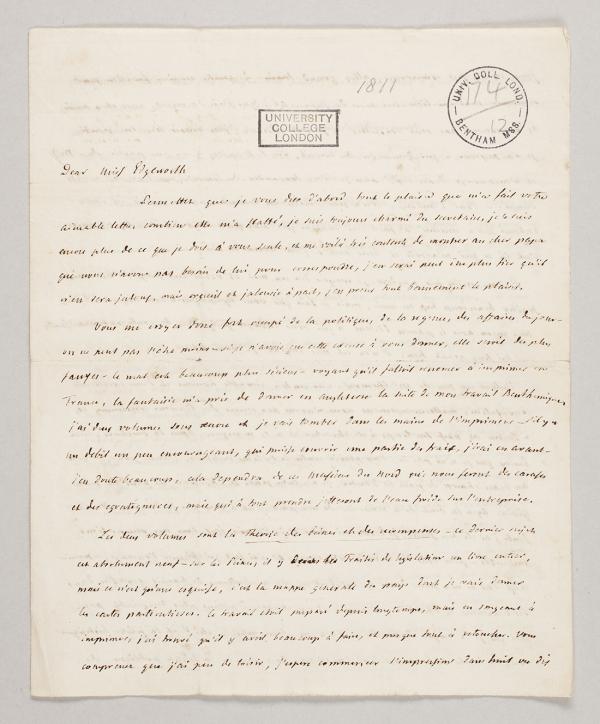 1811
UNIV. COLL. LOND.
174
12
BENTHAM MSS.
UNIVERSITY
COLLEGE
LONDON
Dear Miss Edgeworth
Permettez que je vous dise d'abord tout le plaisir que m'a fait votre
aimable lettre, combien elle m'a flatté, je suis toujours charmé du secretaire, je le suis
encore plus de ce que je dois à vous seule, et me voilà très content de montrer au cher papa
que nous n'avons pas besoin de lui pour correspondre, j'en serai peut être plus fier qu'il
n'en sera jaloux, mais orgueil et jalousie à part, j'en prens tout bonnement le plaisir.
Vous me croyez donc fort occupé de la politique, de la regence, des affaires du jour –
on ne peut pas l'être moins – si je n'avois que cette excuse à vous donner, elle seroit des plus
fausses – le mal est beaucoup plus sérieux – voyant qu'il falloit renoncer à imprimer en
France, la fantaisie m'a pris de donner en angleterre la suite de mon travail Benthamique
j'ai deux volumes sous œuvre et je vais tomber dans les mains de l'imprimeur – s'il y a
un debit un peu encourageant, qui puisse couvrir une partie des fraix, j'irai en avant –
j'en doute beaucoup, cela dependra de ces Messieurs du Nord qui nous feront des caresses
et des egratignures, mais qui à tout prendre jetteront de l'eau froide sur l'entreprise.
Les deux volumes sont la Théorie des peines et des recompenses – ce dernier sujet
est absolument neuf – sur les peines, il y a dans les Traités de legislation un livre entier,
mais ce n'est qu'une esquisse, c'est la mappe generale du pays dont je vais donner
les cartes particulieres. le travail étoit preparé depuis longtemps, mais en songeant à
imprimer, j'ai trouvé qu'il y avoit beaucoup à faire, et presque tout à retoucher. vous
comprenez que j'ai peu de loisir, j'espere commencer l'impression dans huit ou dix